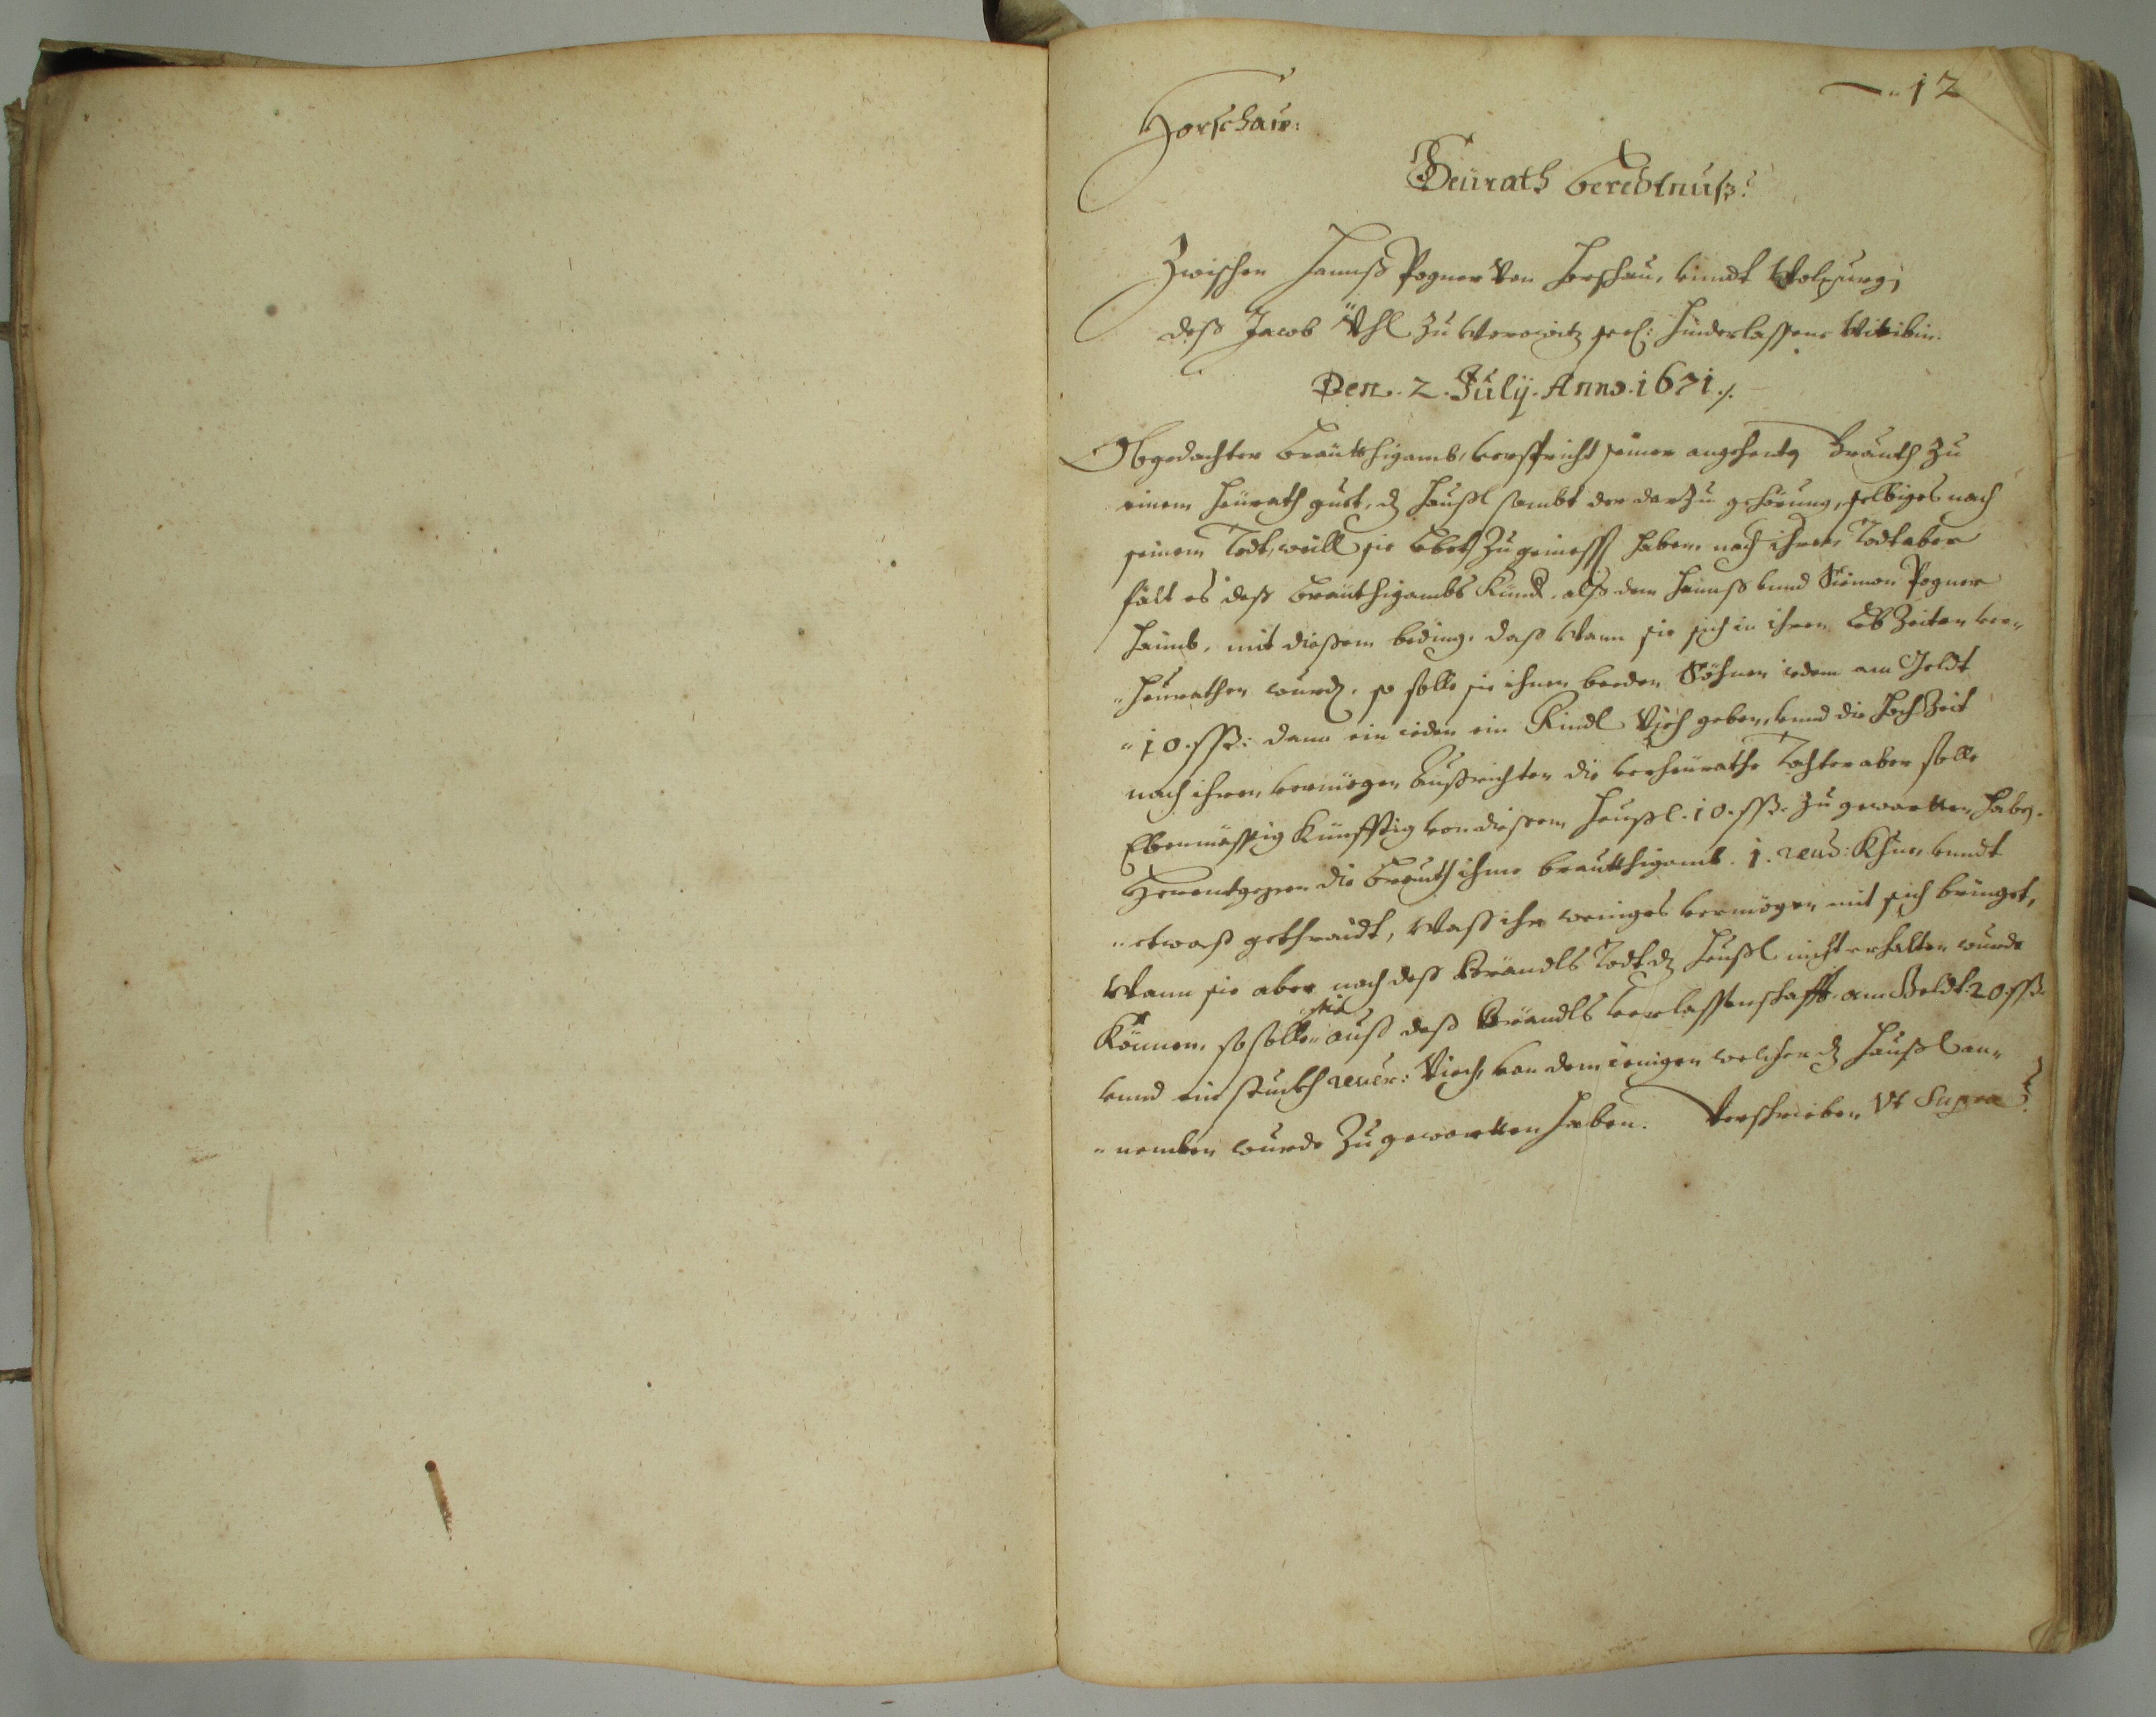 12
Horschaw:
Heürath beredtnuß:
Zwischen Hannß Pogner Von Horschau, vnndt Wolpurg,
deß Jacob Ühl zu Worowitz seel: hinderlassene Wittibin.
Den. 2. Julÿ. Anno. 1671 ./.
Obgedachter Breüthigamb, verspricht seiner angehentn Brauth zu
einem Heürath gutt, dz Heußl sambt der darzue gehörung, selbiges nach
seinem Todt, weill sie lebet zu geniessn haben, nach ihren Todt aber
fält es deß Breüthigambs Kündt, alß dem Hannß vnnd Simon Pogner
haimb, mit dießem beding, daß Wann sie sich in ihren leb Zeiten ver„
„heürathen wurdn, so solle sie ihnen beeden Söhnen iedem am Geldt
„10. ßß: dann ein ieden ein Rindl Viech geben, vnnd die Hochzeit
nach ihren vermögen Außrichten die verheürathe Tochter aber solle
Ebenmässig Künfftig von dießem Heußl. 10. ßß. zu gewartten habn.
Herentgegen die Brauth ihme Breütthigamb. 1. reud: Khue, vnndt
„etwaß gethraidt, Waß ihr weniges vermögen mit sich bringet,
Wann sie aber nach deß Brändls Todt dz Heußl nicht erhalten wurde
Können, so solle sie auß deß Brändls verlassenschafft am Geldt: 20. ßß.
vnnd ein stückh reuer: Viech, von dem ienigen welcher dz Heußl an„
„nemben wurde zu gewartten haben. Verschrieben Vt Supra